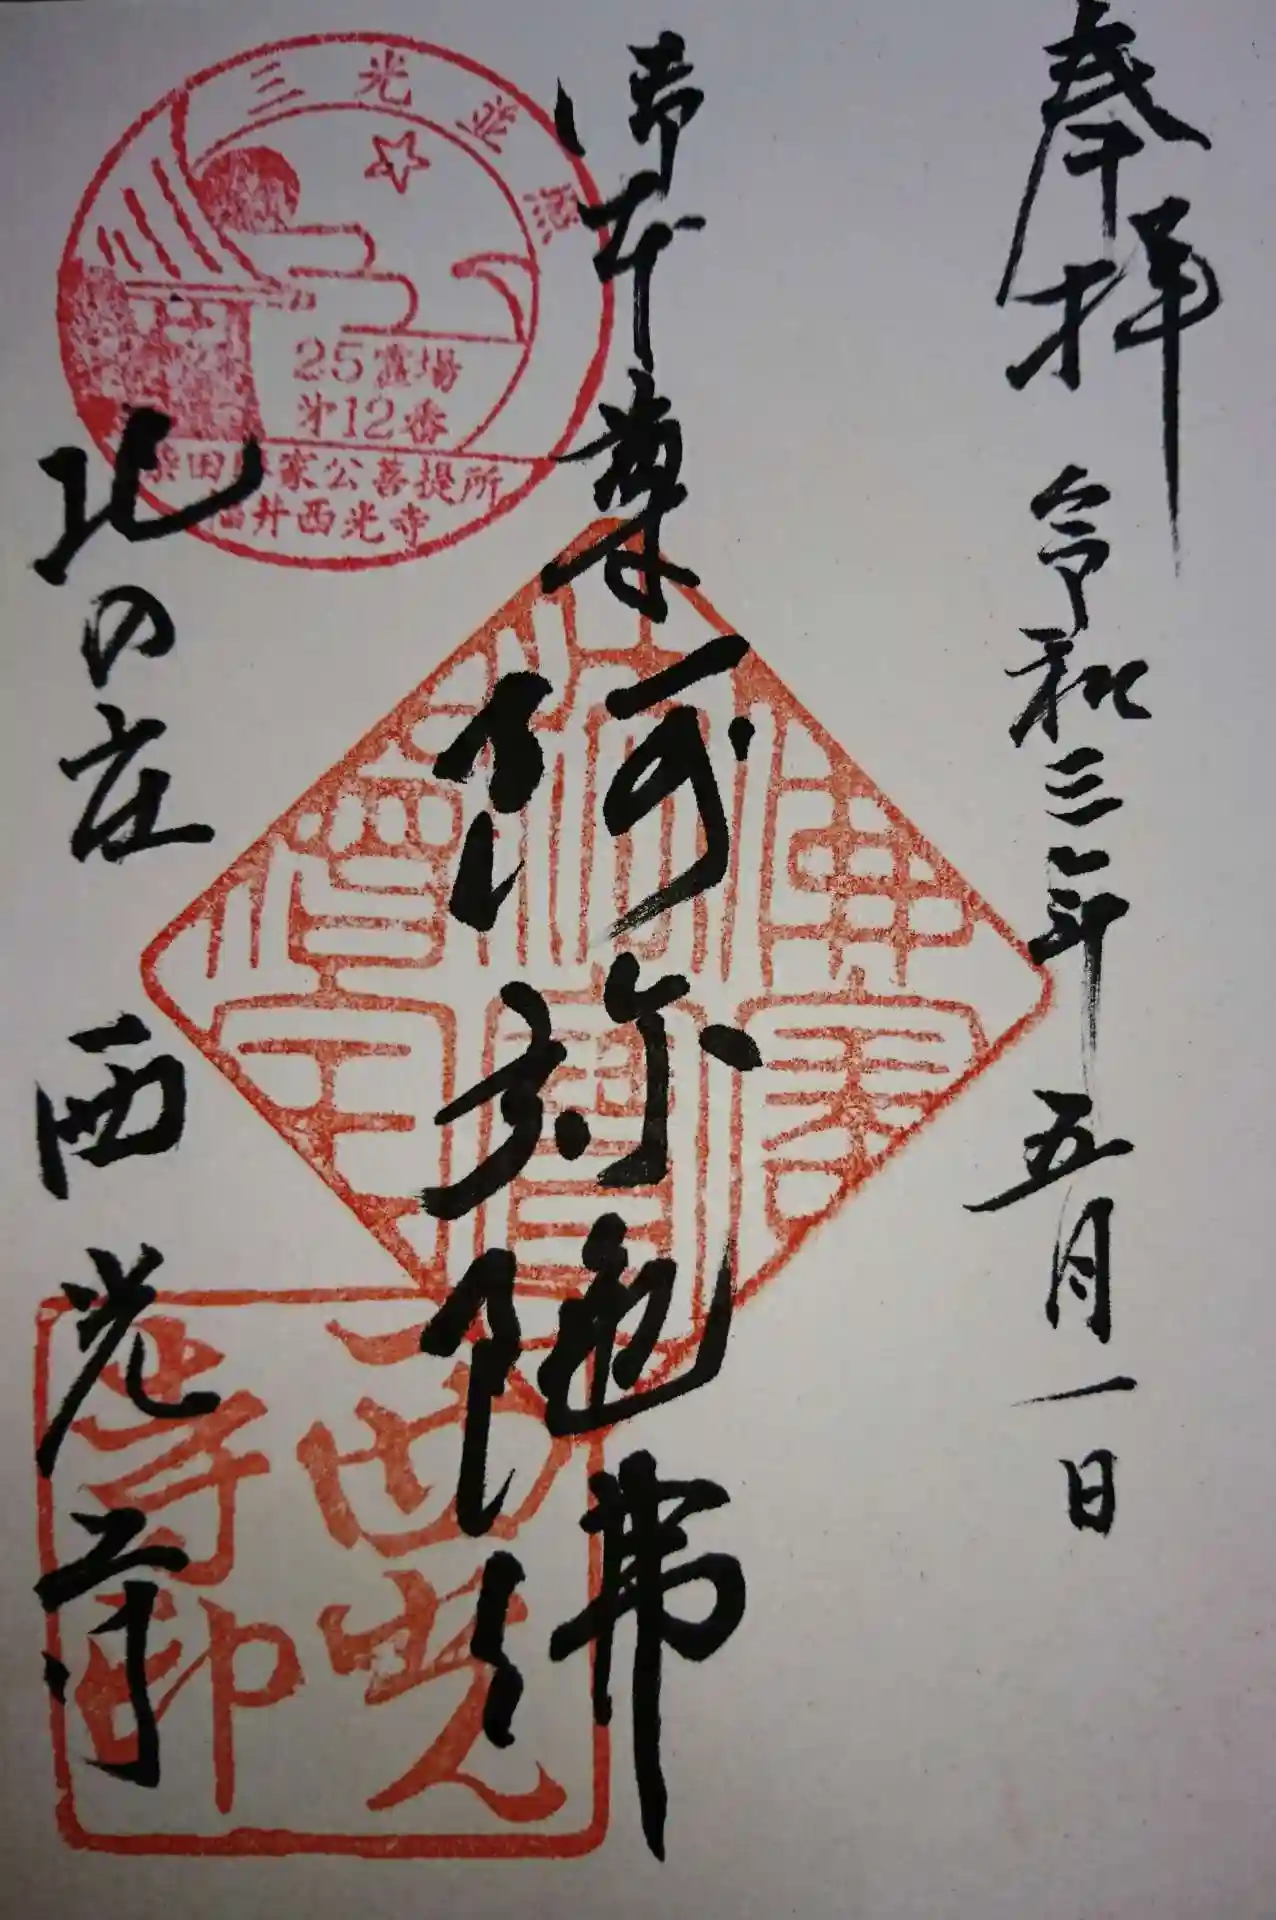 奉拝 令和三年五月一日
御本尊 阿弥陀佛
北の庄 西光寺
三光並照
25霊場
第12番
柴田勝家公菩提所
福井西光寺
佛法僧寳
西光寺印